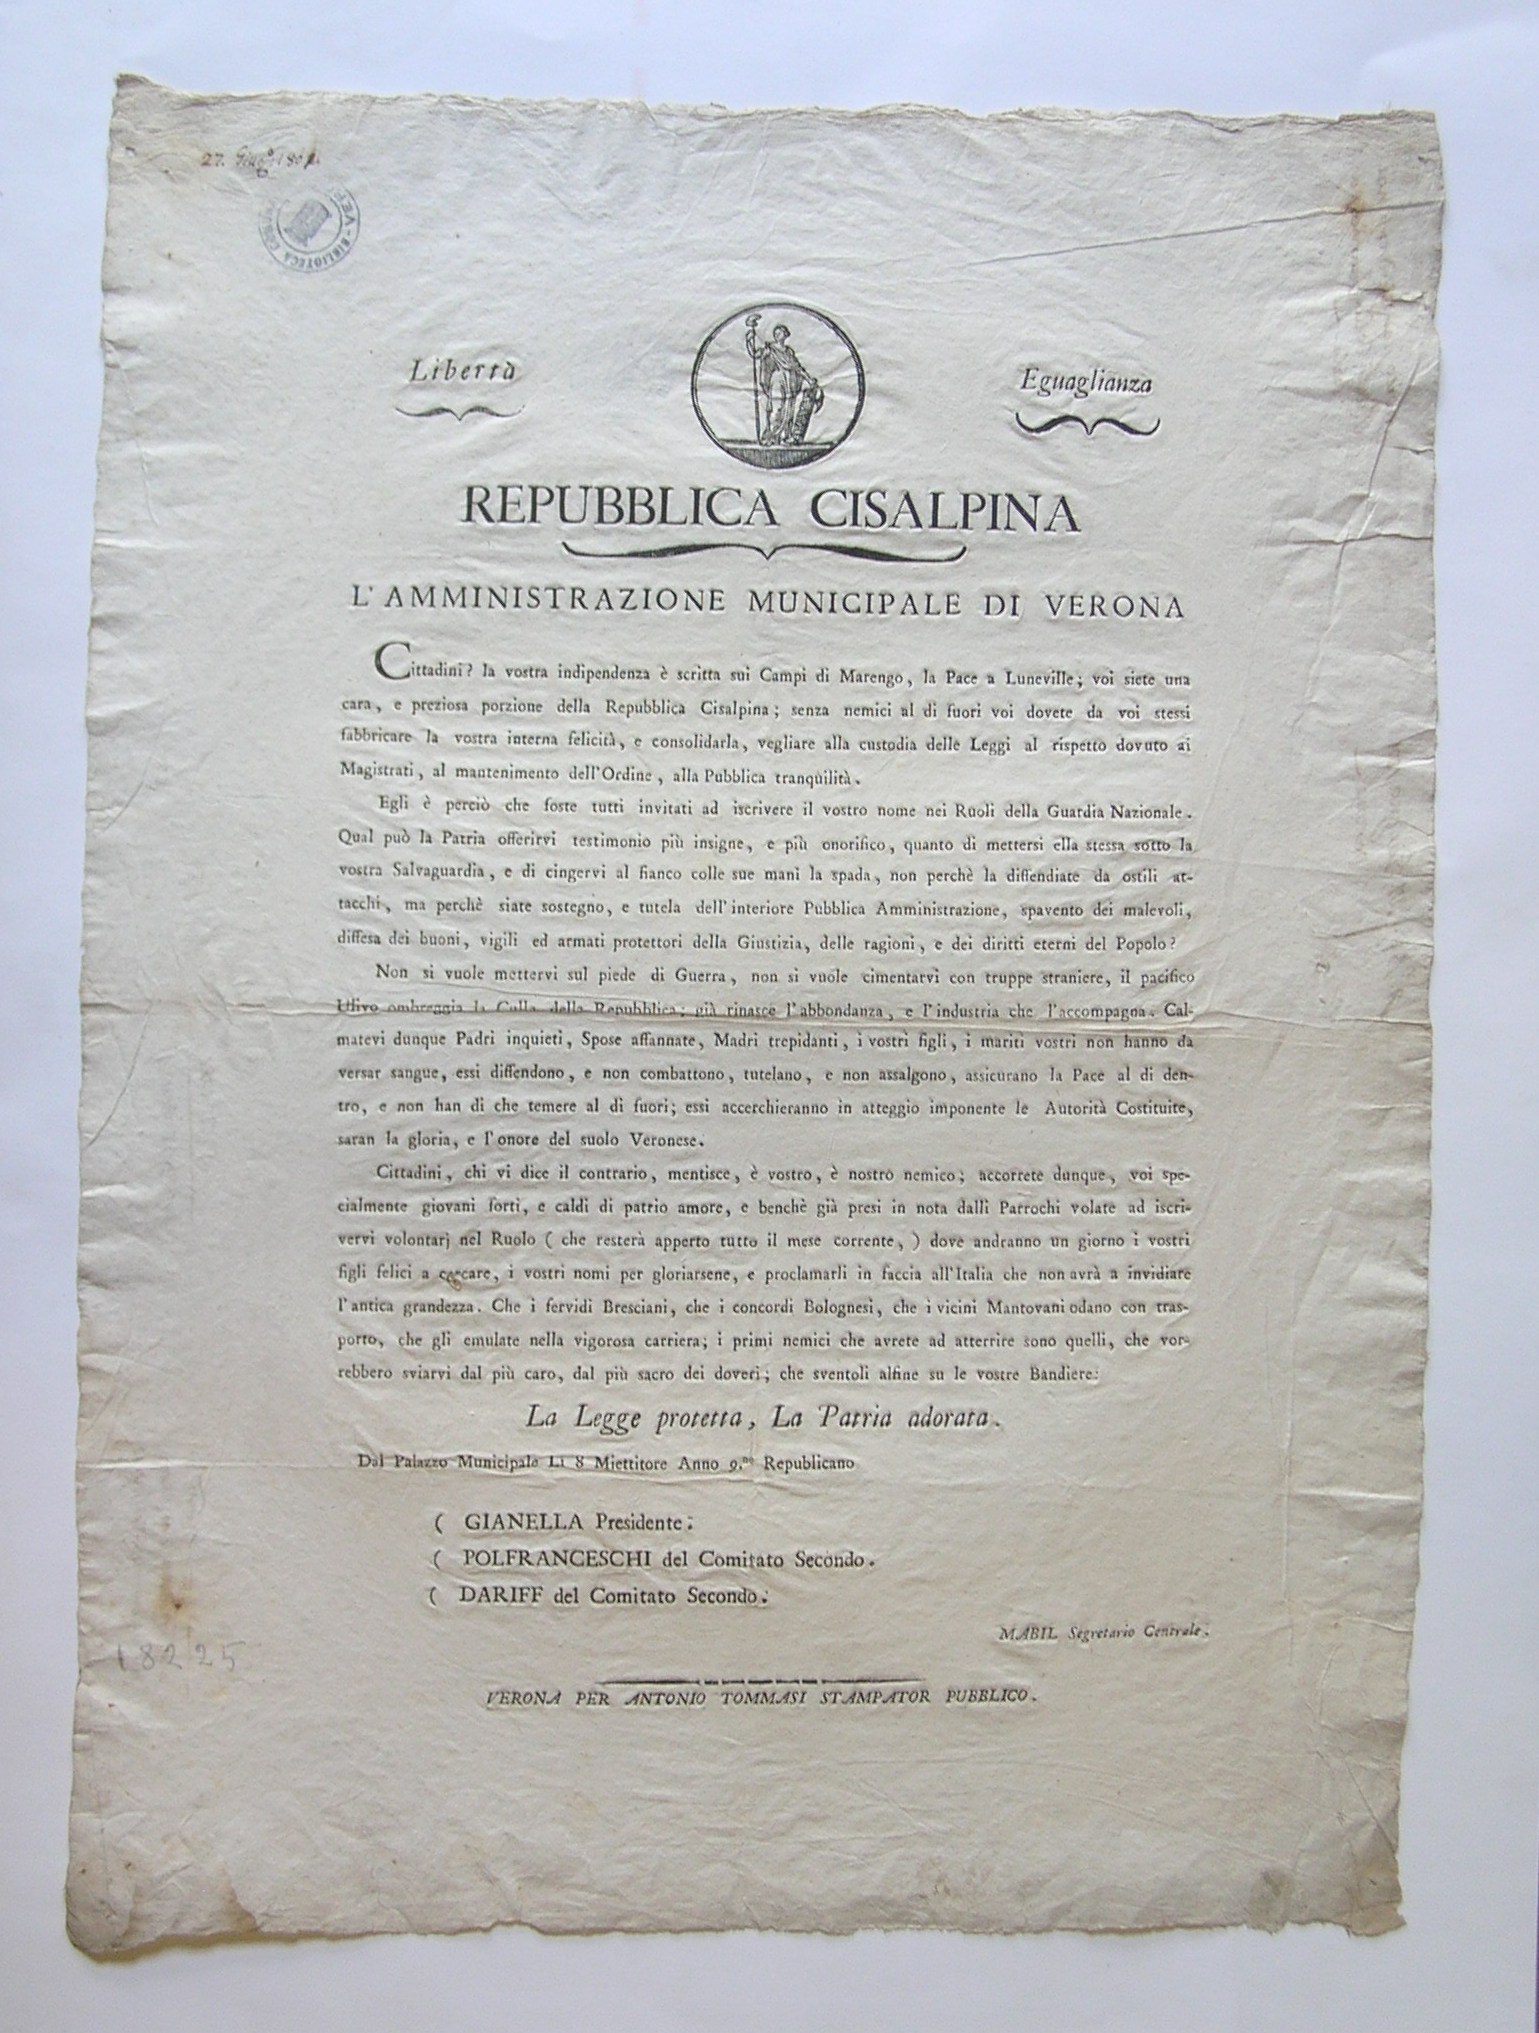 27. Giug.º 1801.
BIBLIOTECA
Libertà
Eguaglianza
REPUBBLICA CISALPINA
L'AMMINISTRAZIONE MUNICIPALE DI VERONA
Cittadini? la vostra indipendenza è scritta sui Campi di Marengo, la Pace a Luneville; voi siete una
cara, e preziosa porzione della Repubblica Cisalpina; senza nemici al di fuori voi dovete da voi stessi
fabbricare la vostra interna felicità, e consolidarla, vegliare alla custodia delle Leggi al rispetto dovuto ai
Magistrati, al mantenimento dell'Ordine, alla Pubblica tranquilità.
Egli è perciò che foste tutti invitati ad iscrivere il vostro nome nei Ruoli della Guardia Nazionale.
Qual può la Patria offerirvi testimonio più insigne, e più onorifico, quanto di mettersi ella stessa sotto la
vostra Salvaguardia, e di cingervi al fianco colle sue mani la spada, non perchè la diffendiate da ostili at-
tacchi, ma perchè siate sostegno, e tutela dell'interiore Pubblica Amministrazione, spavento dei malevoli,
diffesa dei buoni, vigili ed armati protettori della Giustizia, delle ragioni, e dei diritti eterni del Popolo?
Non si vuole mettervi sul piede di Guerra, non si vuole cimentarvi con truppe straniere, il pacifico
Ulivo ombreggia la Culla della Repubblica; già rinasce l'abbondanza, e l'industria che l'accompagna. Cal-
matevi dunque Padri inquieti, Spose affannate, Madri trepidanti, i vostri figli, i mariti vostri non hanno da
versar sangue, essi diffendono, e non combattono, tutelano, e non assalgono, assicurano la Pace al di den-
tro, e non han di che temere al di fuori; essi accerchieranno in atteggio imponente le Autorità Costituite,
saran la gloria, e l'onore del suolo Veronese.
Cittadini, chi vi dice il contrario, mentisce, è vostro, è nostro nemico; accorrete dunque, voi spe-
cialmente giovani forti, e caldi di patrio amore, e benchè già presi in nota dalli Parrochi volate ad iscri-
vervi volontarj nel Ruolo ( che resterà apperto tutto il mese corrente, ) dove andranno un giorno i vostri
figli felici a cercare, i vostri nomi per gloriarsene, e proclamarli in faccia all'Italia che non avrà a invidiare
l'antica grandezza. Che i fervidi Bresciani, che i concordi Bolognesi, che i vicini Mantovani odano con tras-
porto, che gli emulate nella vigorosa carriera; i primi nemici che avrete ad atterrire sono quelli, che vor-
rebbero sviarvi dal più caro, dal più sacro dei doveri; che sventoli alfine su le vostre Bandiere:
La Legge protetta, La Patria adorata.
Dal Palazzo Municipale Li 8 Miettitore Anno 9.no Republicano
( GIANELLA Presidente.
( POLFRANCESCHI del Comitato Secondo.
( DARIFF del Comitato Secondo.
MABIL Segretario Centrale.
18225
VERONA PER ANTONIO TOMMASI STAMPATOR PUBBLICO.